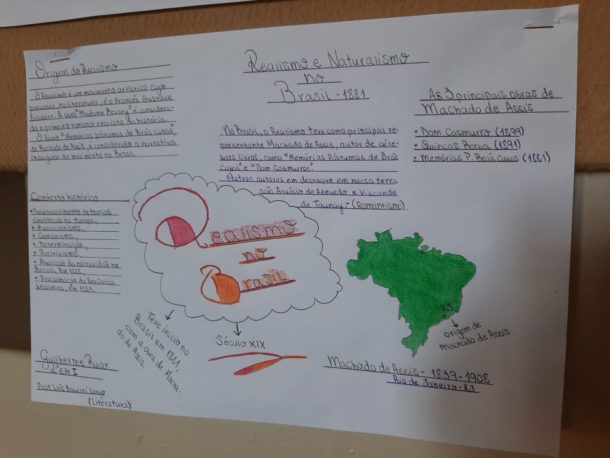 Realismo e Naturalismo
no
Brasil - 1881
Origem do Realismo
O Realismo é um movimento artístico cujo
precursor na literatura, é o francês Gustave
Flaubert. A obra "Madame Bovary" é considera-
da a primeira romance realista da história.
O livro "Memórias póstumas de Brás Cubas",
de Machado de Assis, é considerado a narrativa
inaugural do movimento no Brasil.
Contexto histórico
• Desenvolvimento de teorias
científicas na Europa,
• Evolucionismo,
• Comunismo,
• Determinação,
• Positivismo,
• Abolição da escravidão no
Brasil, em
• Proclamação da República
brasileira, em
No Brasil, o Realismo teve como principal re-
presentante Machado de Assis, autor de céle-
bres livros, como "Memórias Póstumas de Brás
Cubas" e "Dom Casmurro".
Outros autores em destaque em nossa terra
são Aluísio de Azevedo e Visconde
de Taunay - (Romantismo).
As 3 principais obras de
Machado de Assis
• Dom Casmurro (1899)
• Quincas Borba (1891)
• Memórias P. Brás Cubas (1881)
Realismo
no
Brasil
Teve início no
Brasil em 1881,
com a obra de Macha-
do de Assis.
Século XIX
RJ
origem de
machado de Assis.
Machado de Assis - 1839-1908
Rio de Janeiro - RJ
Guilherme
2º EM I
Prof. Luis
(Literatura)